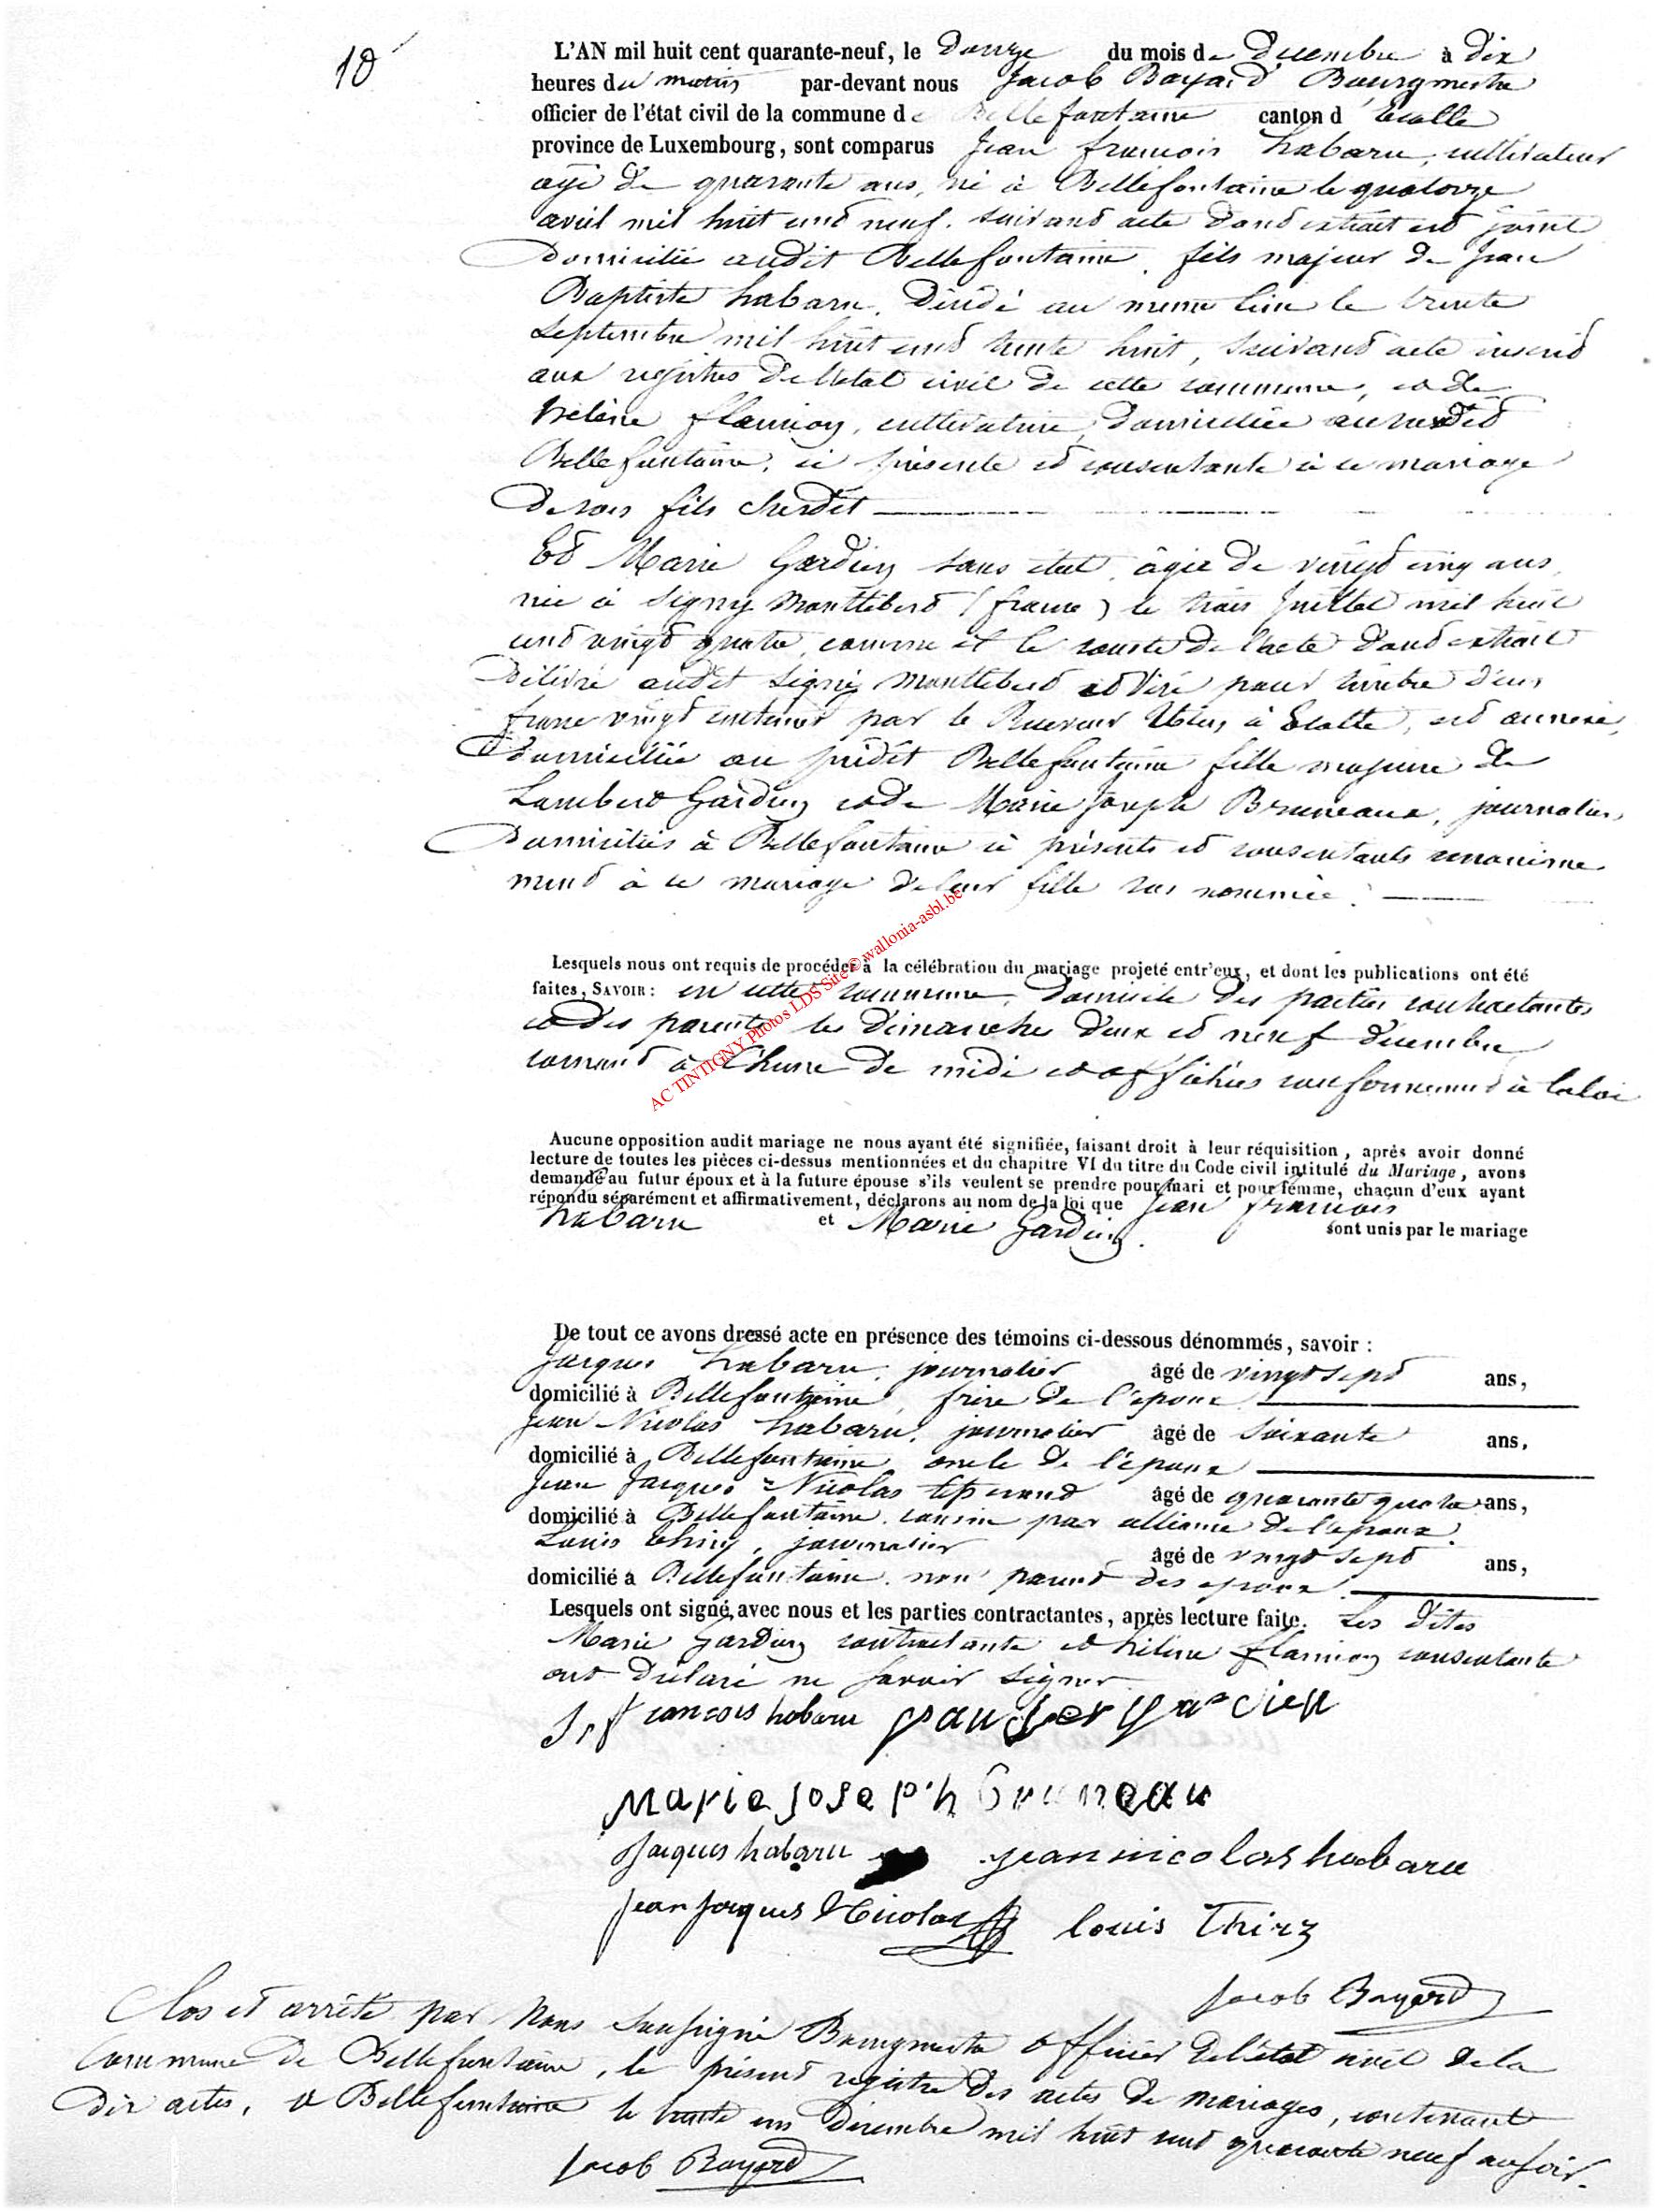 10
L'AN mil huit cent quarante-neuf, le douze du mois de Decembre à dix
heures du matin par-devant nous Jacob Bayard Bourgmestre
officier de l'état civil de la commune de Bellefontaine canton d'Etalle
province de Luxembourg, sont comparus Jean françois habaru, cultivateur
agé de quarante ans, né à Bellefontaine le quatorze
avril mil huit cent neuf. suivant acte dont extrait est joint
Domicilié audit Bellefontaine, fils majeur de Jean
Baptiste habaru, décédé au meme lieu le trente
Septembre mil huit cent trente huit, suivant acte inscrit
aux registres de l'etat civil de cette commune, et de
helène flamion, cultivatrice, domiciliée au
Bellefontaine, ici présente et consentante à ce mariage
de son fils susdit
Et Marie Gardien sans état, âgée de vingt cinq ans,
née à Signy Montlibert (france) le trois Juillet mil huit
cent vingt quatre, comme il le conste de l'acte dont extrait
délivré audit Signy Montlibert et visé pour timbre d'un
franc vingt centimes par le Receveur à Etalle, est annexé,
Domiciliée au prédit Bellefontaine fille majeure de
Lambert Gardien et de Marie Joseph Bruneaux, journaliers,
Domiciliés à Bellefontaine ici présents et consentants unanime
ment à ce mariage de leur fille sus nommée.
Lesquels nous ont requis de procéder à la célébration du mariage projeté entr'eux, et dont les publications ont été
faites, SAVOIR : en cette commune, domicile des parties contractantes
et des parents les dimanches deux et neuf décembre
courant à l'heure de midi et affichées conformement à la loi
Aucune opposition audit mariage ne nous ayant été signifiée, faisant droit à leur réquisition, après avoir donné
lecture de toutes les pièces ci-dessus mentionnées et du chapitre VI du titre du Code civil intitulé du Mariage, avons
demandé au futur époux et à la future épouse s'ils veulent se prendre pour mari et pour femme, chacun d'eux ayant
répondu séparément et affirmativement, déclarons au nom de la loi que Jean françois
habaru et Marie Gardien. sont unis par le mariage
De tout ce avons dressé acte en présence des témoins ci-dessous dénommés, savoir :
Jacques habaru, journalier âgé de vingt sept ans,
domicilié à Bellefontaine, frère de l'epoux
Jean Nicolas habaru, journalier âgé de soixante ans,
domicilié à Bellefontaine oncle de l'époux
Jean Jacques Nicolas âgé de quarante quatre ans,
domicilié à Bellefontaine, cousin par alliance de l'epoux
Louis thiry, journalier âgé de vingt sept ans,
domicilié à Bellefontaine. non parent des epoux
Lesquels ont signé, avec nous et les parties contractantes, après lecture faite. Les dites
Marie Gardien contractante et hélène flamion consentante
ont déclaré ne savoir signer
J françois habaru gardien
Marie Joseph bruneau
Jacques habaru jean nicolas habaru
Jean Jacques Nicolas louis Thiry
Jacob Bayard
Clos et arrêté par Nous Soussigné Bourgmestre officier de l'état civil de la
Commune de Bellefontaine, le présent registre des actes de mariages, contenant
dix actes, à Bellefontaine le trente un Décembre mil huit cent quarante neuf au soir.
Jacob Bayard
AC TINTIGNY Photos LDS Site © wallonia-asbl.be